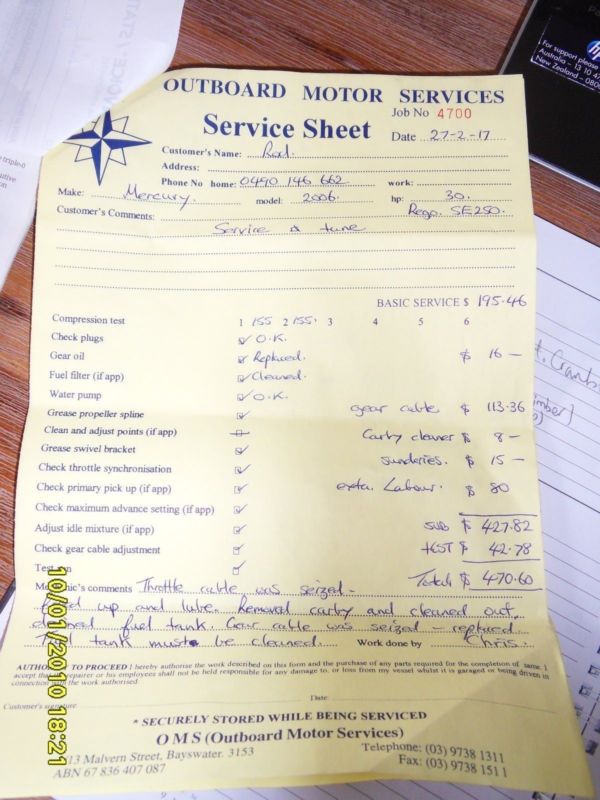 OUTBOARD MOTOR SERVICES
Job No 4700
Service Sheet
Date 27-2-17
Customer's Name: Rod.
Address:
Phone No home: 0490 146 662 work:
Make: Mercury. model: 2006. hp: 30.
Customer's Comments: Rego. SE250.
Service & tune
BASIC SERVICE $ 195.46
Compression test 1 155 2 155. 3 4 5 6
Check plugs O.K.
Gear oil Replaced. $ 16 —
Fuel filter (if app) Cleaned.
Water pump O.K.
Grease propeller spline gear cable $ 113.36
Clean and adjust points (if app) Carby cleaner $ 8 —
Grease swivel bracket sundries. $ 15 —
Check throttle synchronisation
Check primary pick up (if app) exta. Labour. $ 80
Check maximum advance setting (if app)
Adjust idle mixture (if app) SUB $ 427.82
Check gear cable adjustment +GST $ 42.78
Test run Total $ 470.60
Mechanic's comments Throttle cable was seized -
up and lube. Removed carby and cleaned out,
fuel tank. Gear cable was seized - replaced
tank must be cleaned. Work done by Chris.
AUTHORITY TO PROCEED I hereby authorise the work described on this form and the purchase of any parts required for the completion of same. I
accept that repairer or his employees shall not be held responsible for any damage to, or loss from my vessel whilst it is garaged or being driven in
connection with the work authorised.
Customer's signature Date:
* SECURELY STORED WHILE BEING SERVICED
O M S (Outboard Motor Services)
13 Malvern Street, Bayswater. 3153
ABN 67 836 407 087
Telephone: (03) 9738 1311
Fax: (03) 9738 1511
10/01/2010 18:21
hp
For support please
Australia - 13 10 47
New Zealand - 0800